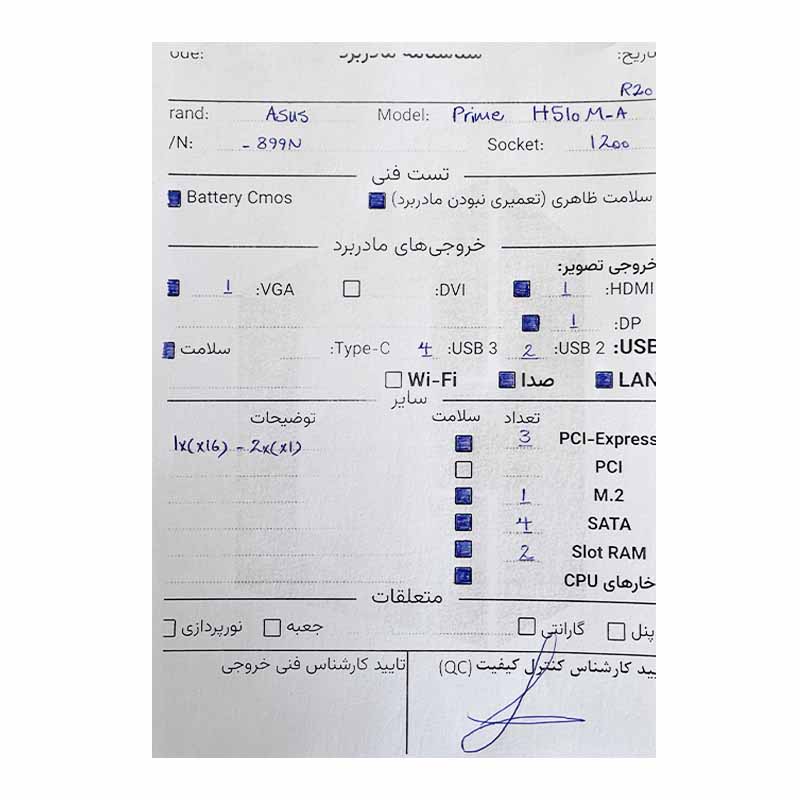 شناسنامه مادربرد
R20
Brand: Asus Model: Prime H510 M-A
/N: - 899N Socket: 1200
تست فنی
سلامت ظاهری (تعمیری نبودن مادربرد) Battery Cmos
خروجی‌های مادربرد
خروجی تصویر:
HDMI: 1 DVI: VGA: 1
DP: 1
USB: USB 2: 2 USB 3: 4 Type-C: سلامت
LAN صدا Wi-Fi
سایر
تعداد سلامت توضیحات
PCI-Express 3 1x(x16) - 2x(x1)
PCI
M.2 1
SATA 4
Slot RAM 2
خارهای CPU
متعلقات
پنل گارانتی جعبه نورپردازی
یید کارشناس کنترل کیفیت (QC) تایید کارشناس فنی خروجی